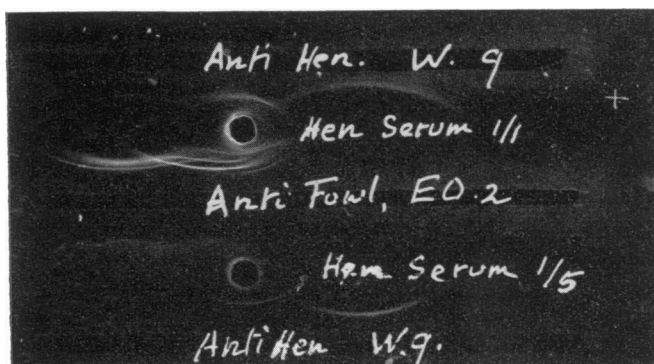 Anti Hen. W. 9
+
Hen Serum 1/1
Anti Fowl, EO.2
Hen Serum 1/5
Anti Hen W.9.